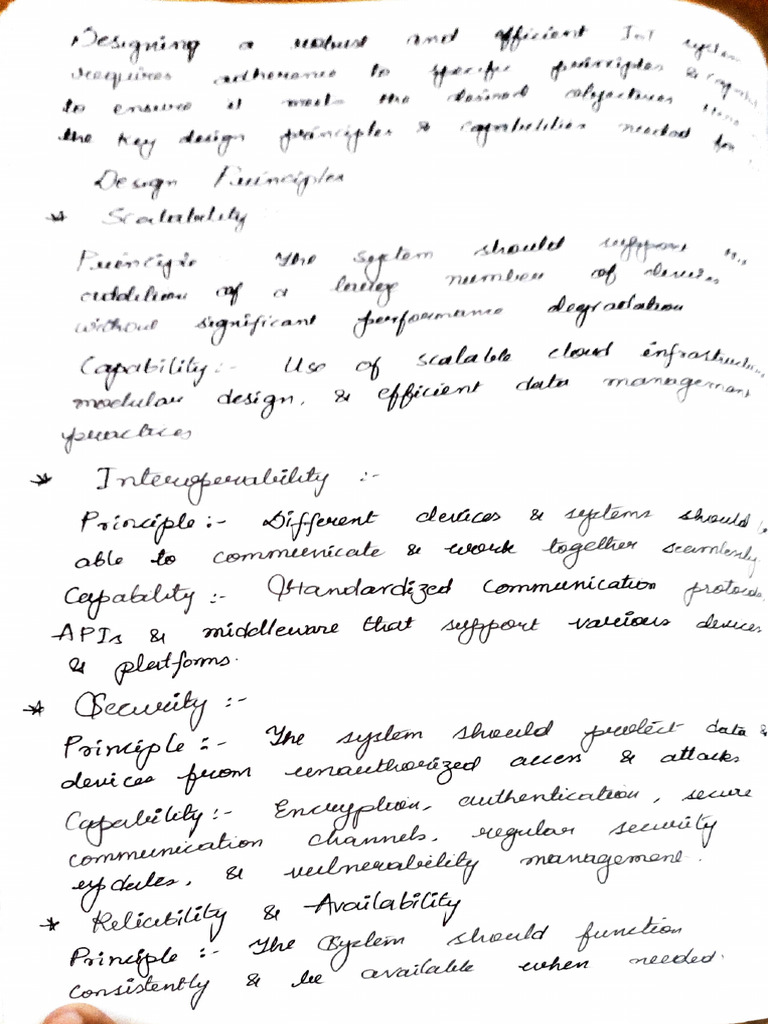 Designing a robust and efficient IoT system
requires adherence to specific principles &
to ensure it meets the desired objectives
the key design principles & capabilities needed for
Design Principles
* Scalability
Principle The system should support the
addition of a large number of devices
without significant performance degradation
Capability :- Use of scalable cloud infrastructure,
modular design, & efficient data management
practices
* Interoperability :-
Principle :- Different devices & systems should be
able to communicate & work together seamlessly.
Capability :- Standardized communication protocols,
APIs & middleware that support various devices
& platforms.
* Security :-
Principle :- The system should protect data &
devices from unauthorized access & attacks
Capability :- Encryption, authentication, secure
communication channels, regular security
updates, & vulnerability management.
* Reliability & Availability
Principle :- The System should function
consistently & be available when needed.